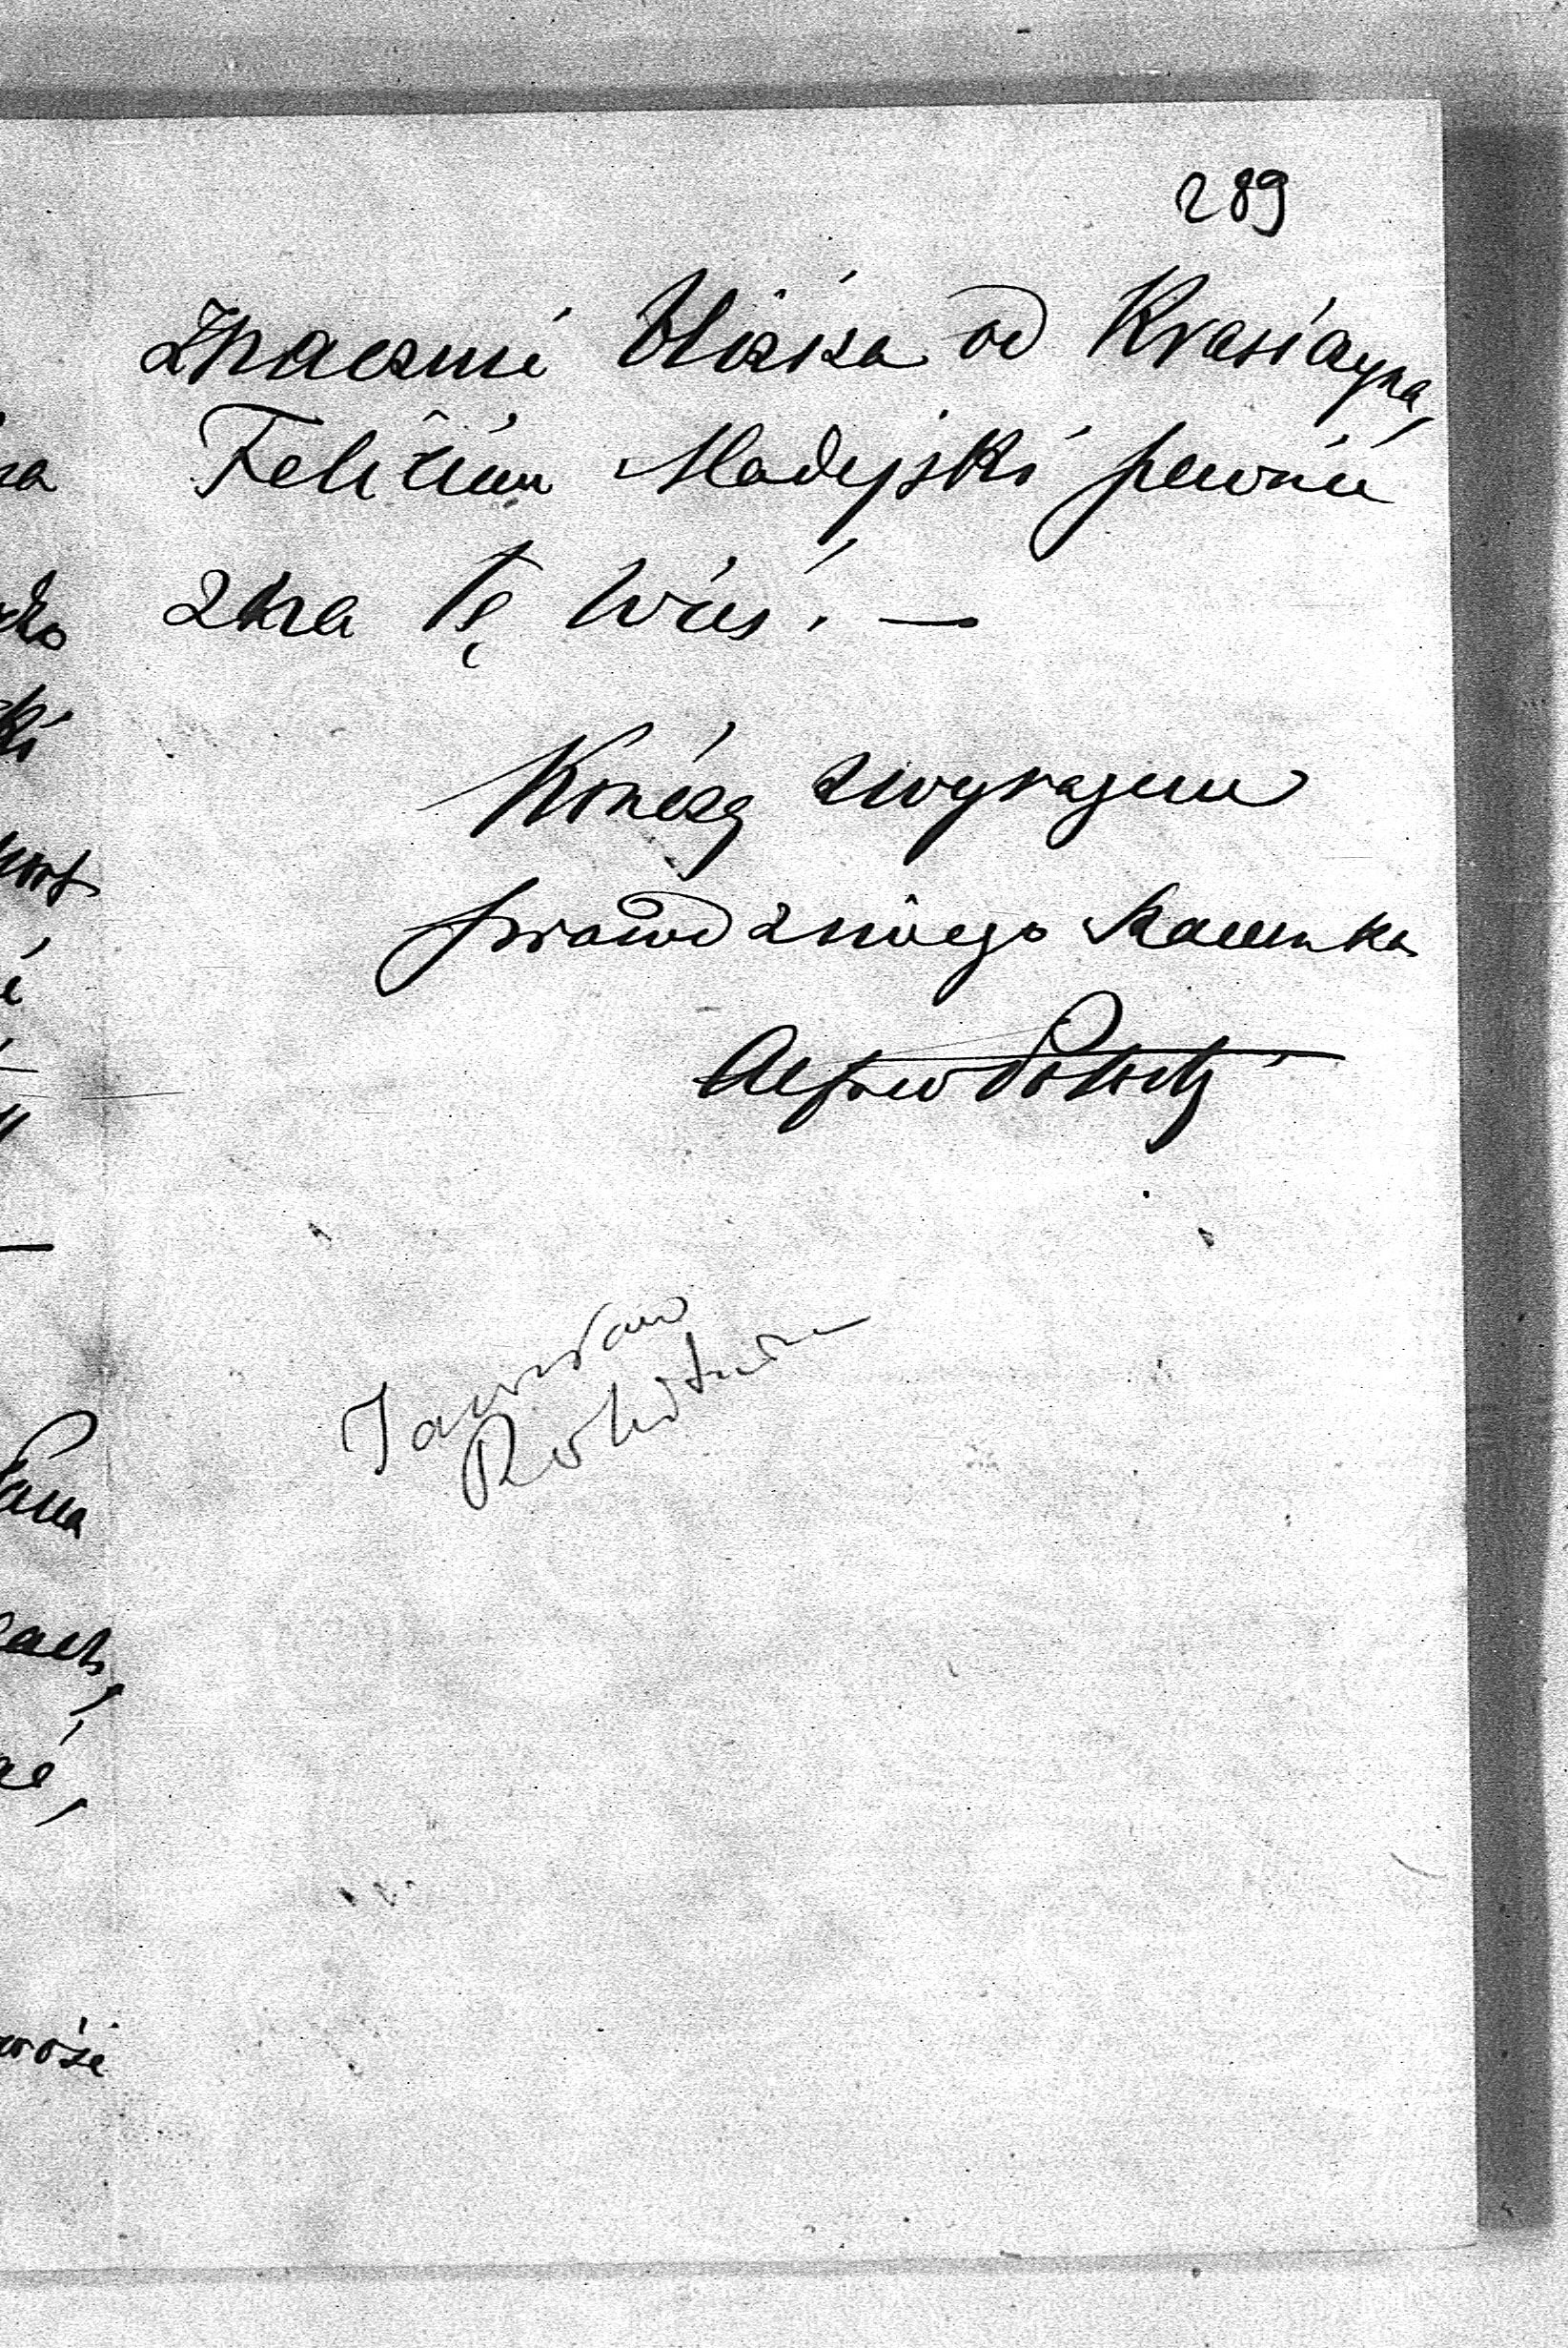 289
Znacznie bliska od Krasiczyna,
Felician Madejski pewnie
zna tę wieś. —
Kończę z wyrazem
prawdziwego szacunku
Alfred Potocki
Jarosław